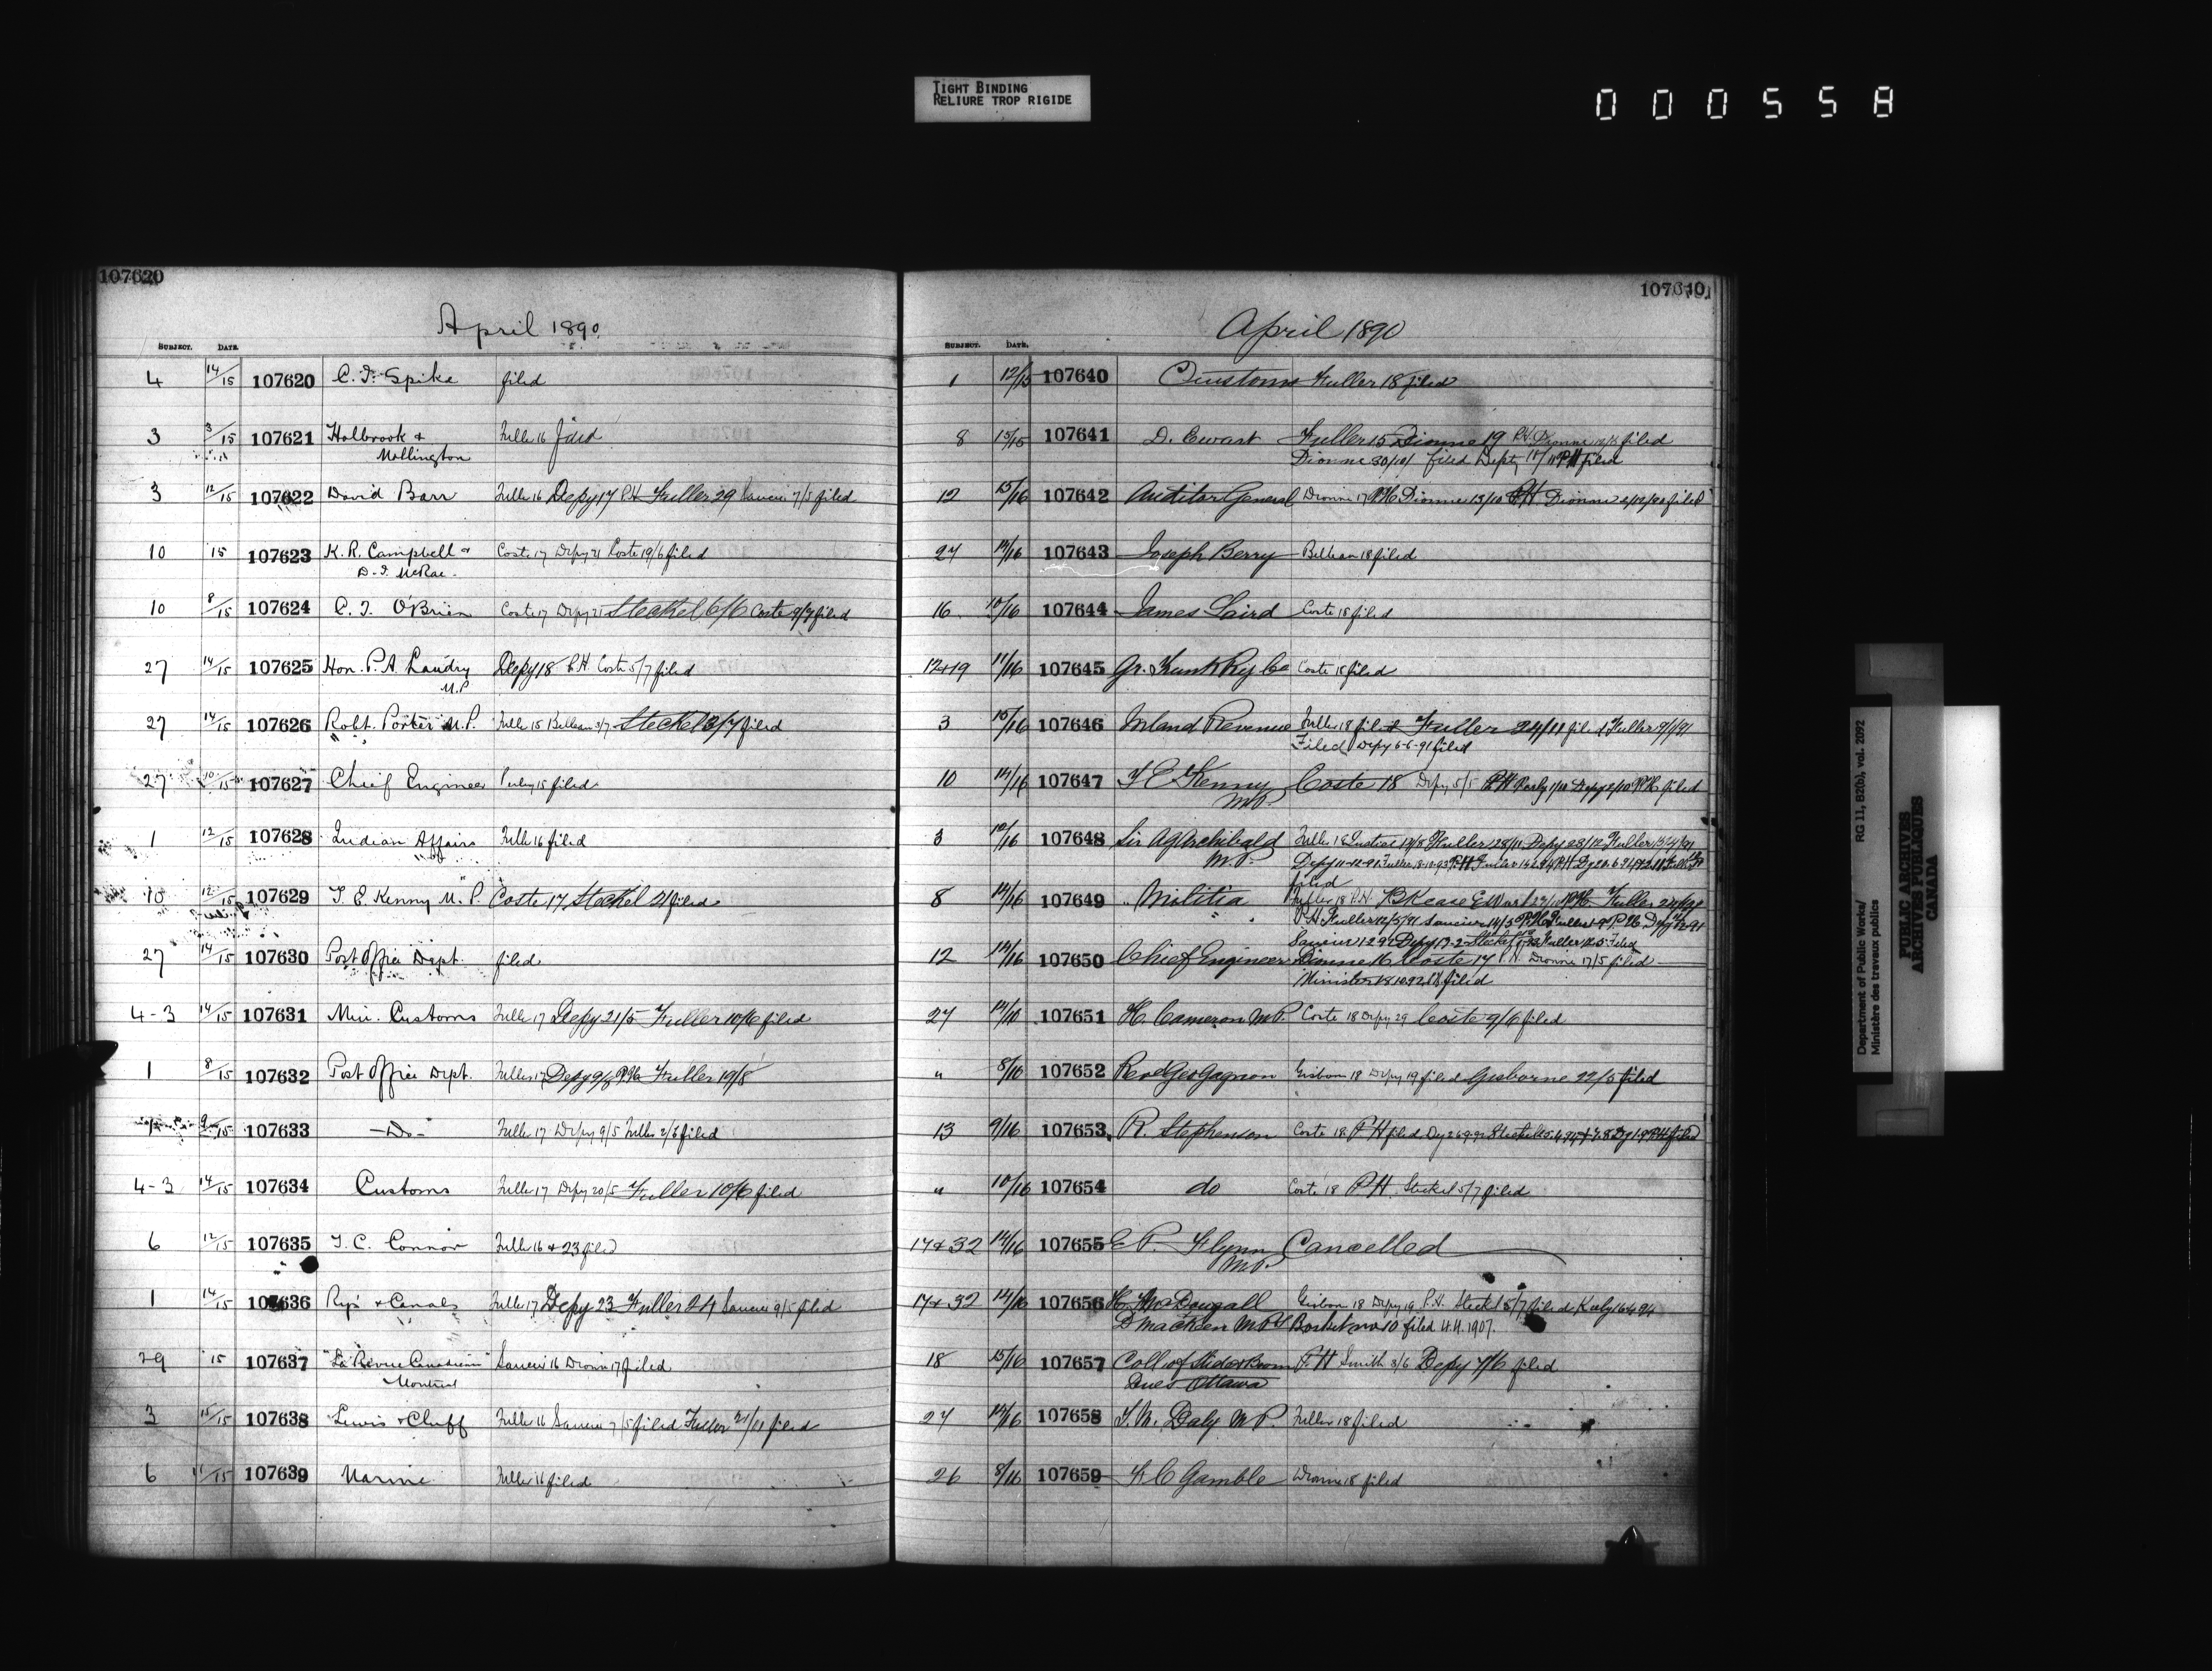 TIGHT BINDING
RELIURE TROP RIGIDE
000558
107620
April 1890
SUBJECT. DATE.
4 14/15 107620 C. F. Spike filed
3 3/15 107621 Holbrook + Fuller 16 filed
Mollington
3 12/15 107622 David Barr Fuller 16 Depy 17 P.H Fuller 29 7/5 filed
10 15 107623 K. R. Campbell + Coste 17 Depy 21 Coste 19/6 filed
D. F. McRae
10 8/15 107624 C. J. O'Brien Coste 17 Depy 21 Steckel 6/6 Coste 9/7 filed
27 14/15 107625 Hon. P. A. Landry Depy 18 P.H Coste 5/7 filed
M.P
27 14/15 107626 Robt. Porter M.P. Fuller 15 3/7 Steckel 3/7 filed
27 10/15 107627 Chief Engineer Perley 15 filed
1 12/15 107628 Indian Affairs Fuller 16 filed
10 12/15 107629 T. E. Kenny M.P. Coste 17 Steckel 21 filed
27 14/15 107630 Post Office Dept. filed
4-3 14/15 107631 Min. Customs Fuller 17 Depy 21/5 Fuller 10/6 filed
1 8/15 107632 Post Office Dept. Fuller 17 Depy 9/5 Fuller 19/8
1 9/15 107633 - Do - Fuller 17 Depy 9/5 Fuller filed
4-3 14/15 107634 Customs Fuller 17 Depy 20/5 Fuller 10/6 filed
6 12/15 107635 T. C. Connor Fuller 16 + 23 filed
1 14/15 107636 Rys + Canals Fuller 17 Depy 23 Fuller 24 9/5 filed
29 15 107637 "La Revue Canadienne" 16 Dionne 17 filed
Montreal
3 15/15 107638 Lewis + Cluff Fuller 16 7/5 filed Fuller 21/11 filed
6 11/15 107639 Marine Fuller 16 filed
107640
April 1890
SUBJECT. DATE.
1 12/15 107640 Customs Fuller 18 filed
8 15/15 107641 D. Ewart Fuller 15 Dionne 19 P.H. Dionne filed
Dionne 30/10/ filed Depty 11/11 P.H filed
12 15/16 107642 Auditor General Dionne 17 P.H. Dionne 13/10 P.H. Dionne 2/12/90 filed
27 14/16 107643 Joseph Berry 18 filed
16 10/16 107644 James Laird Coste 18 filed
12+19 11/16 107645 Gr. Trunk Ry Co Coste 18 filed
3 15/16 107646 Inland Revenue Fuller 18 filed Fuller 24/11 filed Fuller 9/1/91
Filed Depy 6-6-91 filed
10 14/16 107647 T E Kenny Coste 18 Depy 5/5 P.H Perly 1/10 Depy 2/10 P.H. filed
M.P.
3 12/16 107648 Sir A G Archibald Fuller 18 Fuller 28/11 Depy 23/12 Fuller
M.P. Depy 11-12-91 Fuller 18-10-93 P.H
filed
8 14/16 107649 " Militia Fuller 18 P.H. P.H. Fuller
P.H Fuller 12/3/91
Depy 17-2 Steckel Fuller filed
12 14/16 107650 Chief Engineer Dionne 16 Coste 17 P.H. Dionne 17/5 filed
Minister 18.10.92 filed
27 14/16 107651 H. Cameron M.P. Coste 18 Depy 29 Coste 9/6 filed
" 8/16 107652 Revd Geo Gagnon Gisborne 18 Depy 19 filed Gisborne 22/5 filed
13 9/16 107653 R. Stephenson Coste 18 P.H filed
" 10/16 107654 do Coste 18 P.H. Steckel 5/7 filed
17 & 32 14/16 107655 E P. Flynn Cancelled
M.P.
17 & 32 14/16 107656 H. McDougall Gisborne 18 Depy 19 P.H. Steckel 5/7 filed
D MacKeen M.P's Basket no 10 filed 4.4.1907.
18 15/16 107657 Coll. of Slide & Boom P.H Smith 3/6 Depy 7/6 filed
Dues Ottawa
27 14/16 107658 T. M. Daly M.P. Fuller 18 filed
26 8/16 107659 F C Gamble Dionne 18 filed
Department of Public Works/ RG 11, B2(b), vol. 2092
Ministère des travaux publics
PUBLIC ARCHIVES
ARCHIVES PUBLIQUES
CANADA